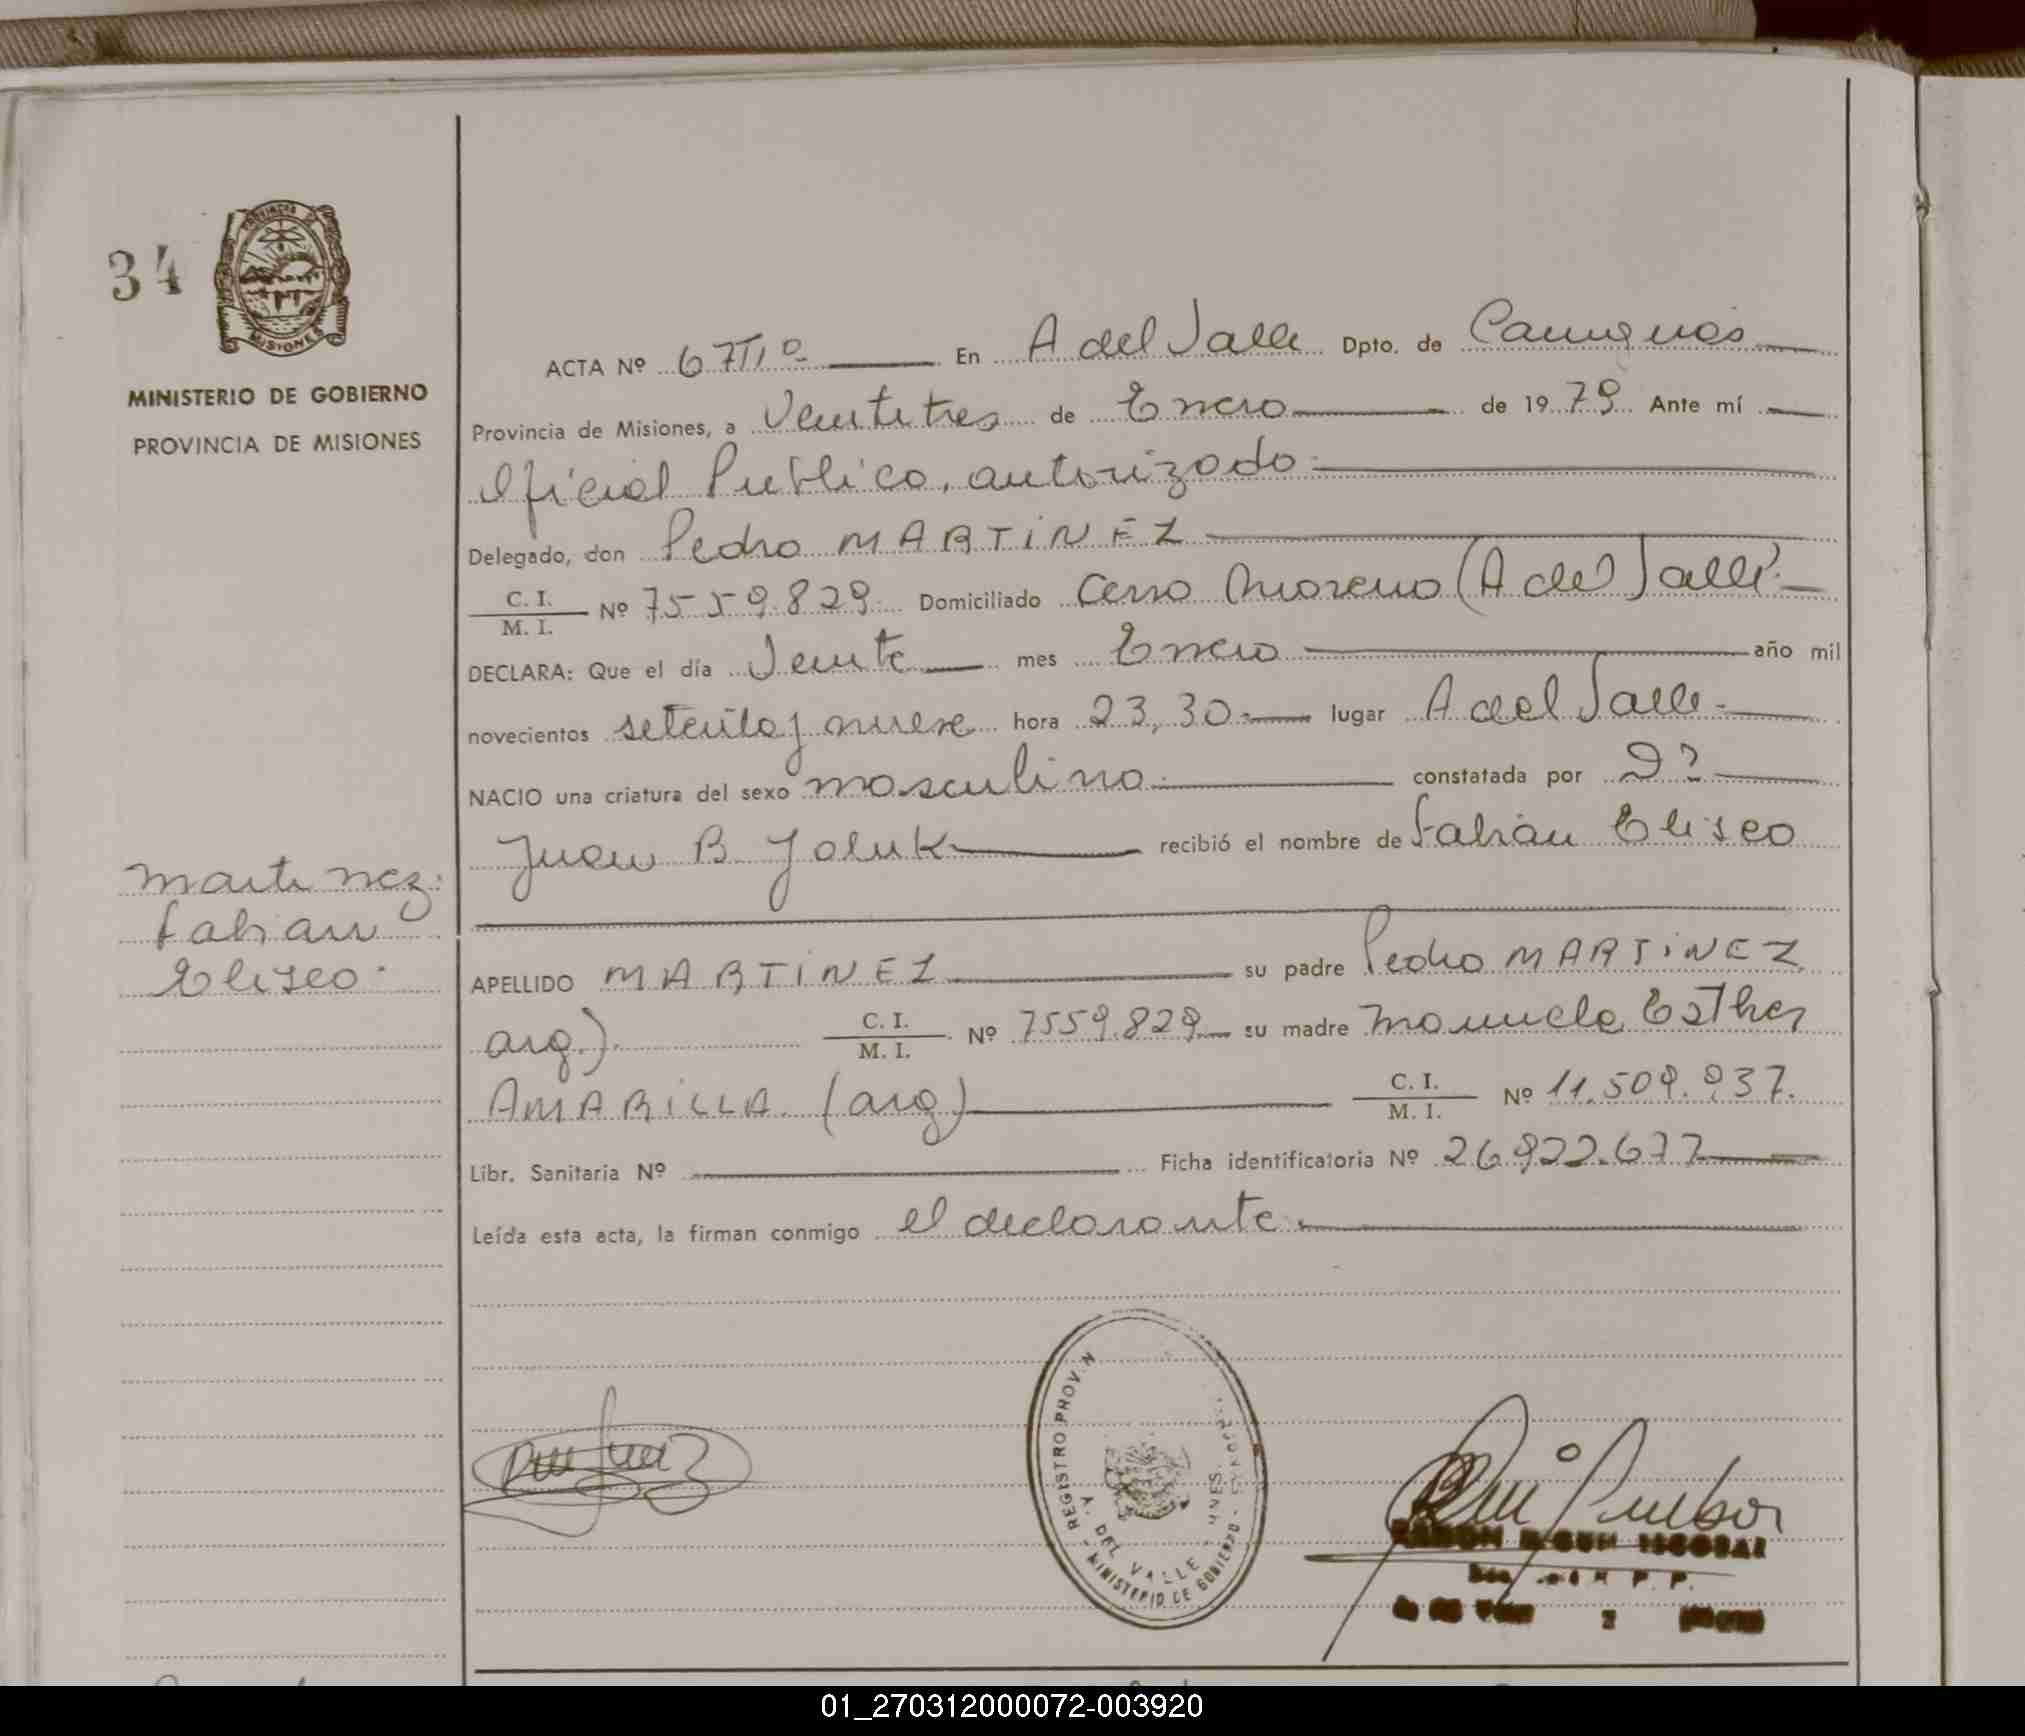 34
PROVINCIA DE
MISIONES
MINISTERIO DE GOBIERNO
PROVINCIA DE MISIONES
Martinez
Fabian
Eliseo.
ACTA Nº 67 En A del Valle Dpto. de
Provincia de Misiones, a Veintitres de Enero de 19 79 Ante mí
Oficial Publico, autorizado
Delegado, don Pedro MARTINEZ
C. I. / M. I. Nº 7559.829 Domiciliado Cerro Moreno (A del Valle)
DECLARA: Que el día Veinte mes Enero año mil
novecientos setenta y nueve hora 23,30 lugar A del Valle
NACIO una criatura del sexo masculino constatada por
Juan B. recibió el nombre de Fabián Eliseo
APELLIDO MARTINEZ su padre Pedro MARTINEZ
arg). C. I. / M. I. Nº 7559.829 su madre Manuela Esther
AMARILLA (arg) C. I. / M. I. Nº 11.509.937.
Libr. Sanitaria Nº Ficha identificatoria Nº 26.922.677
Leída esta acta, la firman conmigo el declarante.
REGISTRO PROV.
A. DEL VALLE - MNES.
MINISTERIO DE GOBIERNO
01_270312000072-003920